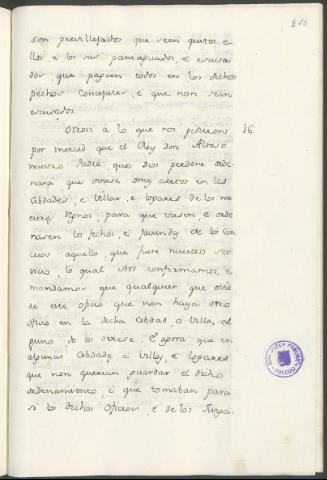 210
son previllejados que sean quitos e-
llos e los sus paniaguados, e escusa-
dos, que paguen todos en los dichos
pechos Concejales, e que non sean
escusados.
Otrosi a lo que nos pidieron 16.
por merced que el Rey Don Alonso
nuestro Padre que Dios perdone orde-
nara que oviese omes ciertos en las
Cibdades, e Villas, e logares de los nu-
estros Regnos, para que viesen, e orde-
nasen los fechos, e facienda de los Con-
cejos aquello, que fuese nuestro ser-
vicio, lo qual Nos confirmamos, e
mandamos que qualquier que ovie-
se este oficio que non haya otro
oficio en la dicha Cibdad, o Villa, al-
guno, do lo oviese. E agora que en
algunas Cibdades e Villas, e logares
que non querian guardar el dicho
ordenamiento, e que tomaban para
si los dichos oficios, e de los Juzga-
BIBLIOTECA PUBLICA
TOLEDO